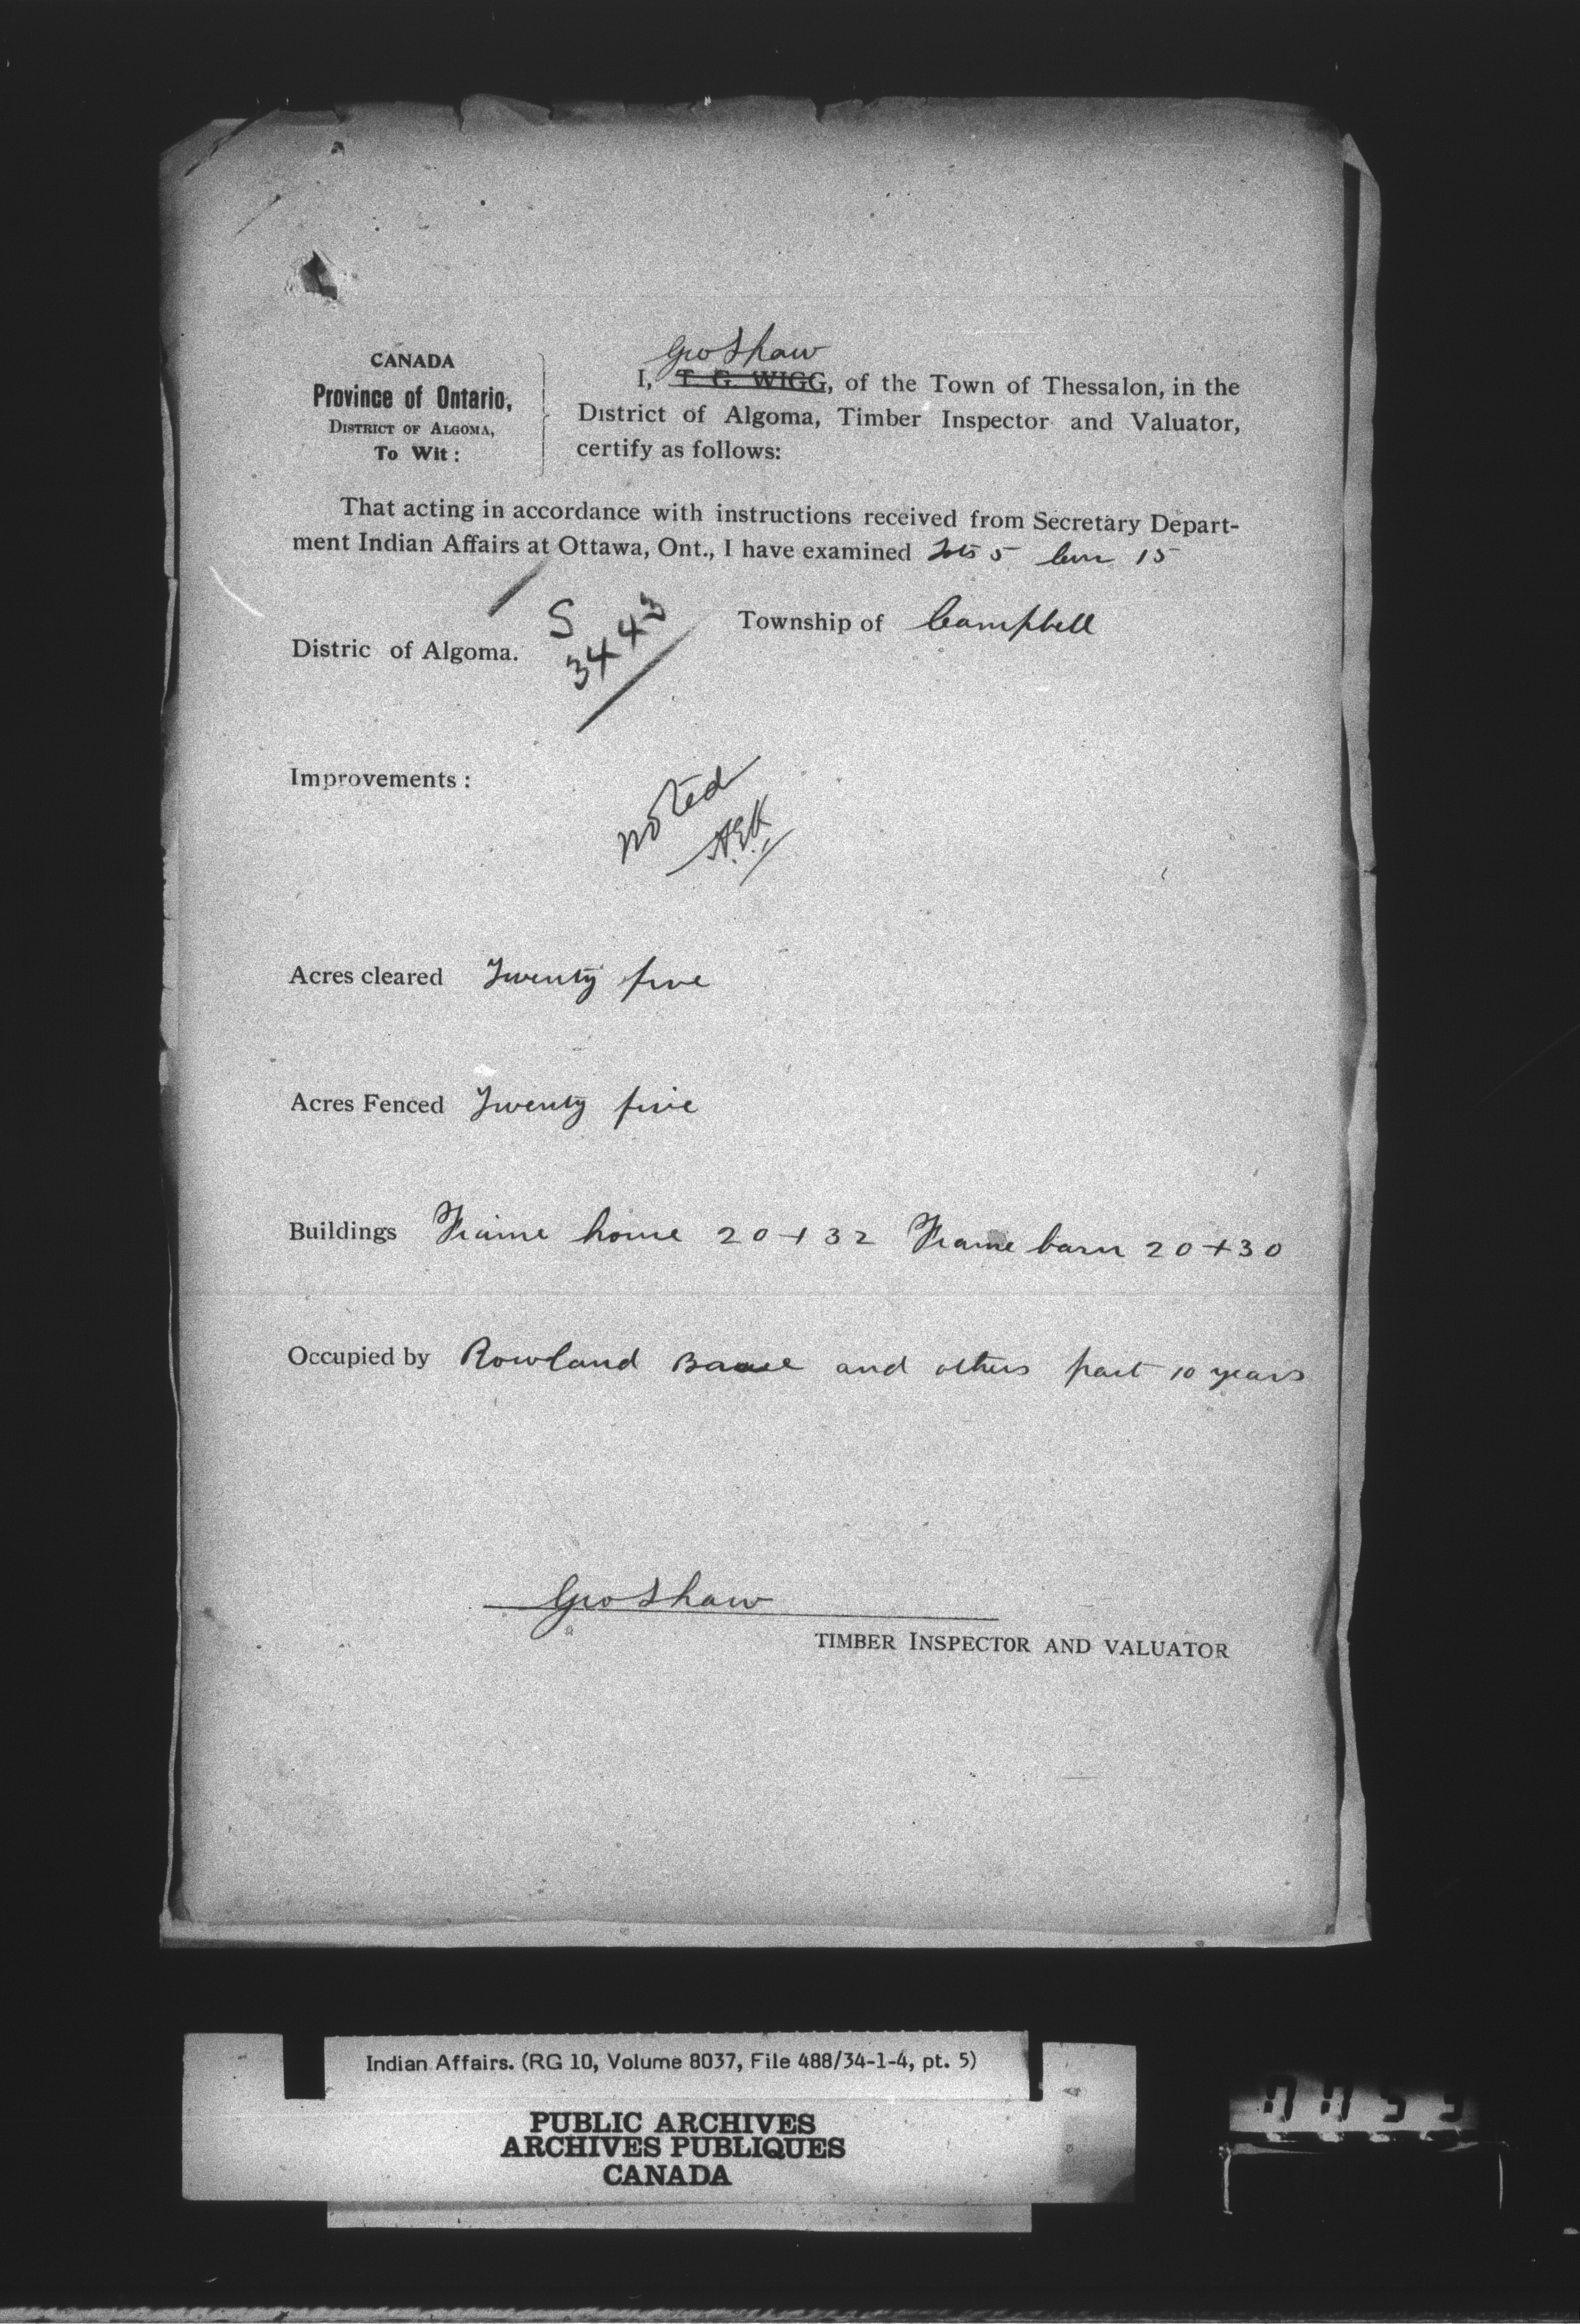 Geo Shaw
CANADA
Province of Ontario,
DISTRICT OF ALGOMA,
To Wit:
I, T. G. WIGG, of the Town of Thessalon, in the
District of Algoma, Timber Inspector and Valuator,
certify as follows:
That acting in accordance with instructions received from Secretary Depart-
ment Indian Affairs at Ottawa, Ont., I have examined Lots 5 Con 15
S
3443
Township of Campbell
Distric of Algoma.
Improvements:
noted
Acres cleared Twenty five
Acres Fenced Twenty five
Buildings Frame house 20 + 32 Frame barn 20 + 30
Occupied by Rowland and others past 10 years
Geo Shaw
TIMBER INSPECTOR AND VALUATOR
Indian Affairs. (RG 10, Volume 8037, File 488/34-1-4, pt. 5)
PUBLIC ARCHIVES
ARCHIVES PUBLIQUES
CANADA